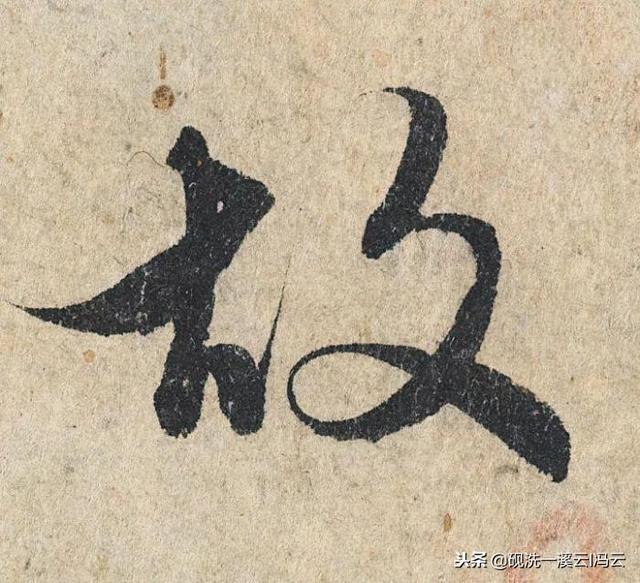 故
头条 @砚洗一溪云l冯云